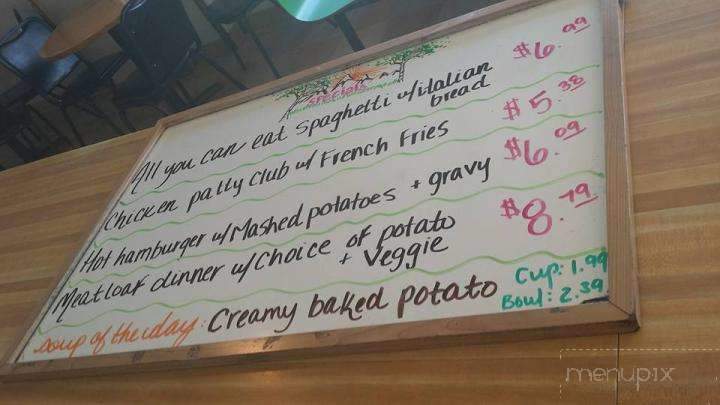 specials
All you can eat spaghetti w/italian $6.99
bread
Chicken patty club w/ French Fries $5.38
Hot hamburger w/Mashed potatoes + gravy $6.09
Meatloaf dinner w/choice of potato $8.79
+ Veggie
soup of the day: Creamy baked potato Cup: 1.99
Bowl: 2.39
menupix